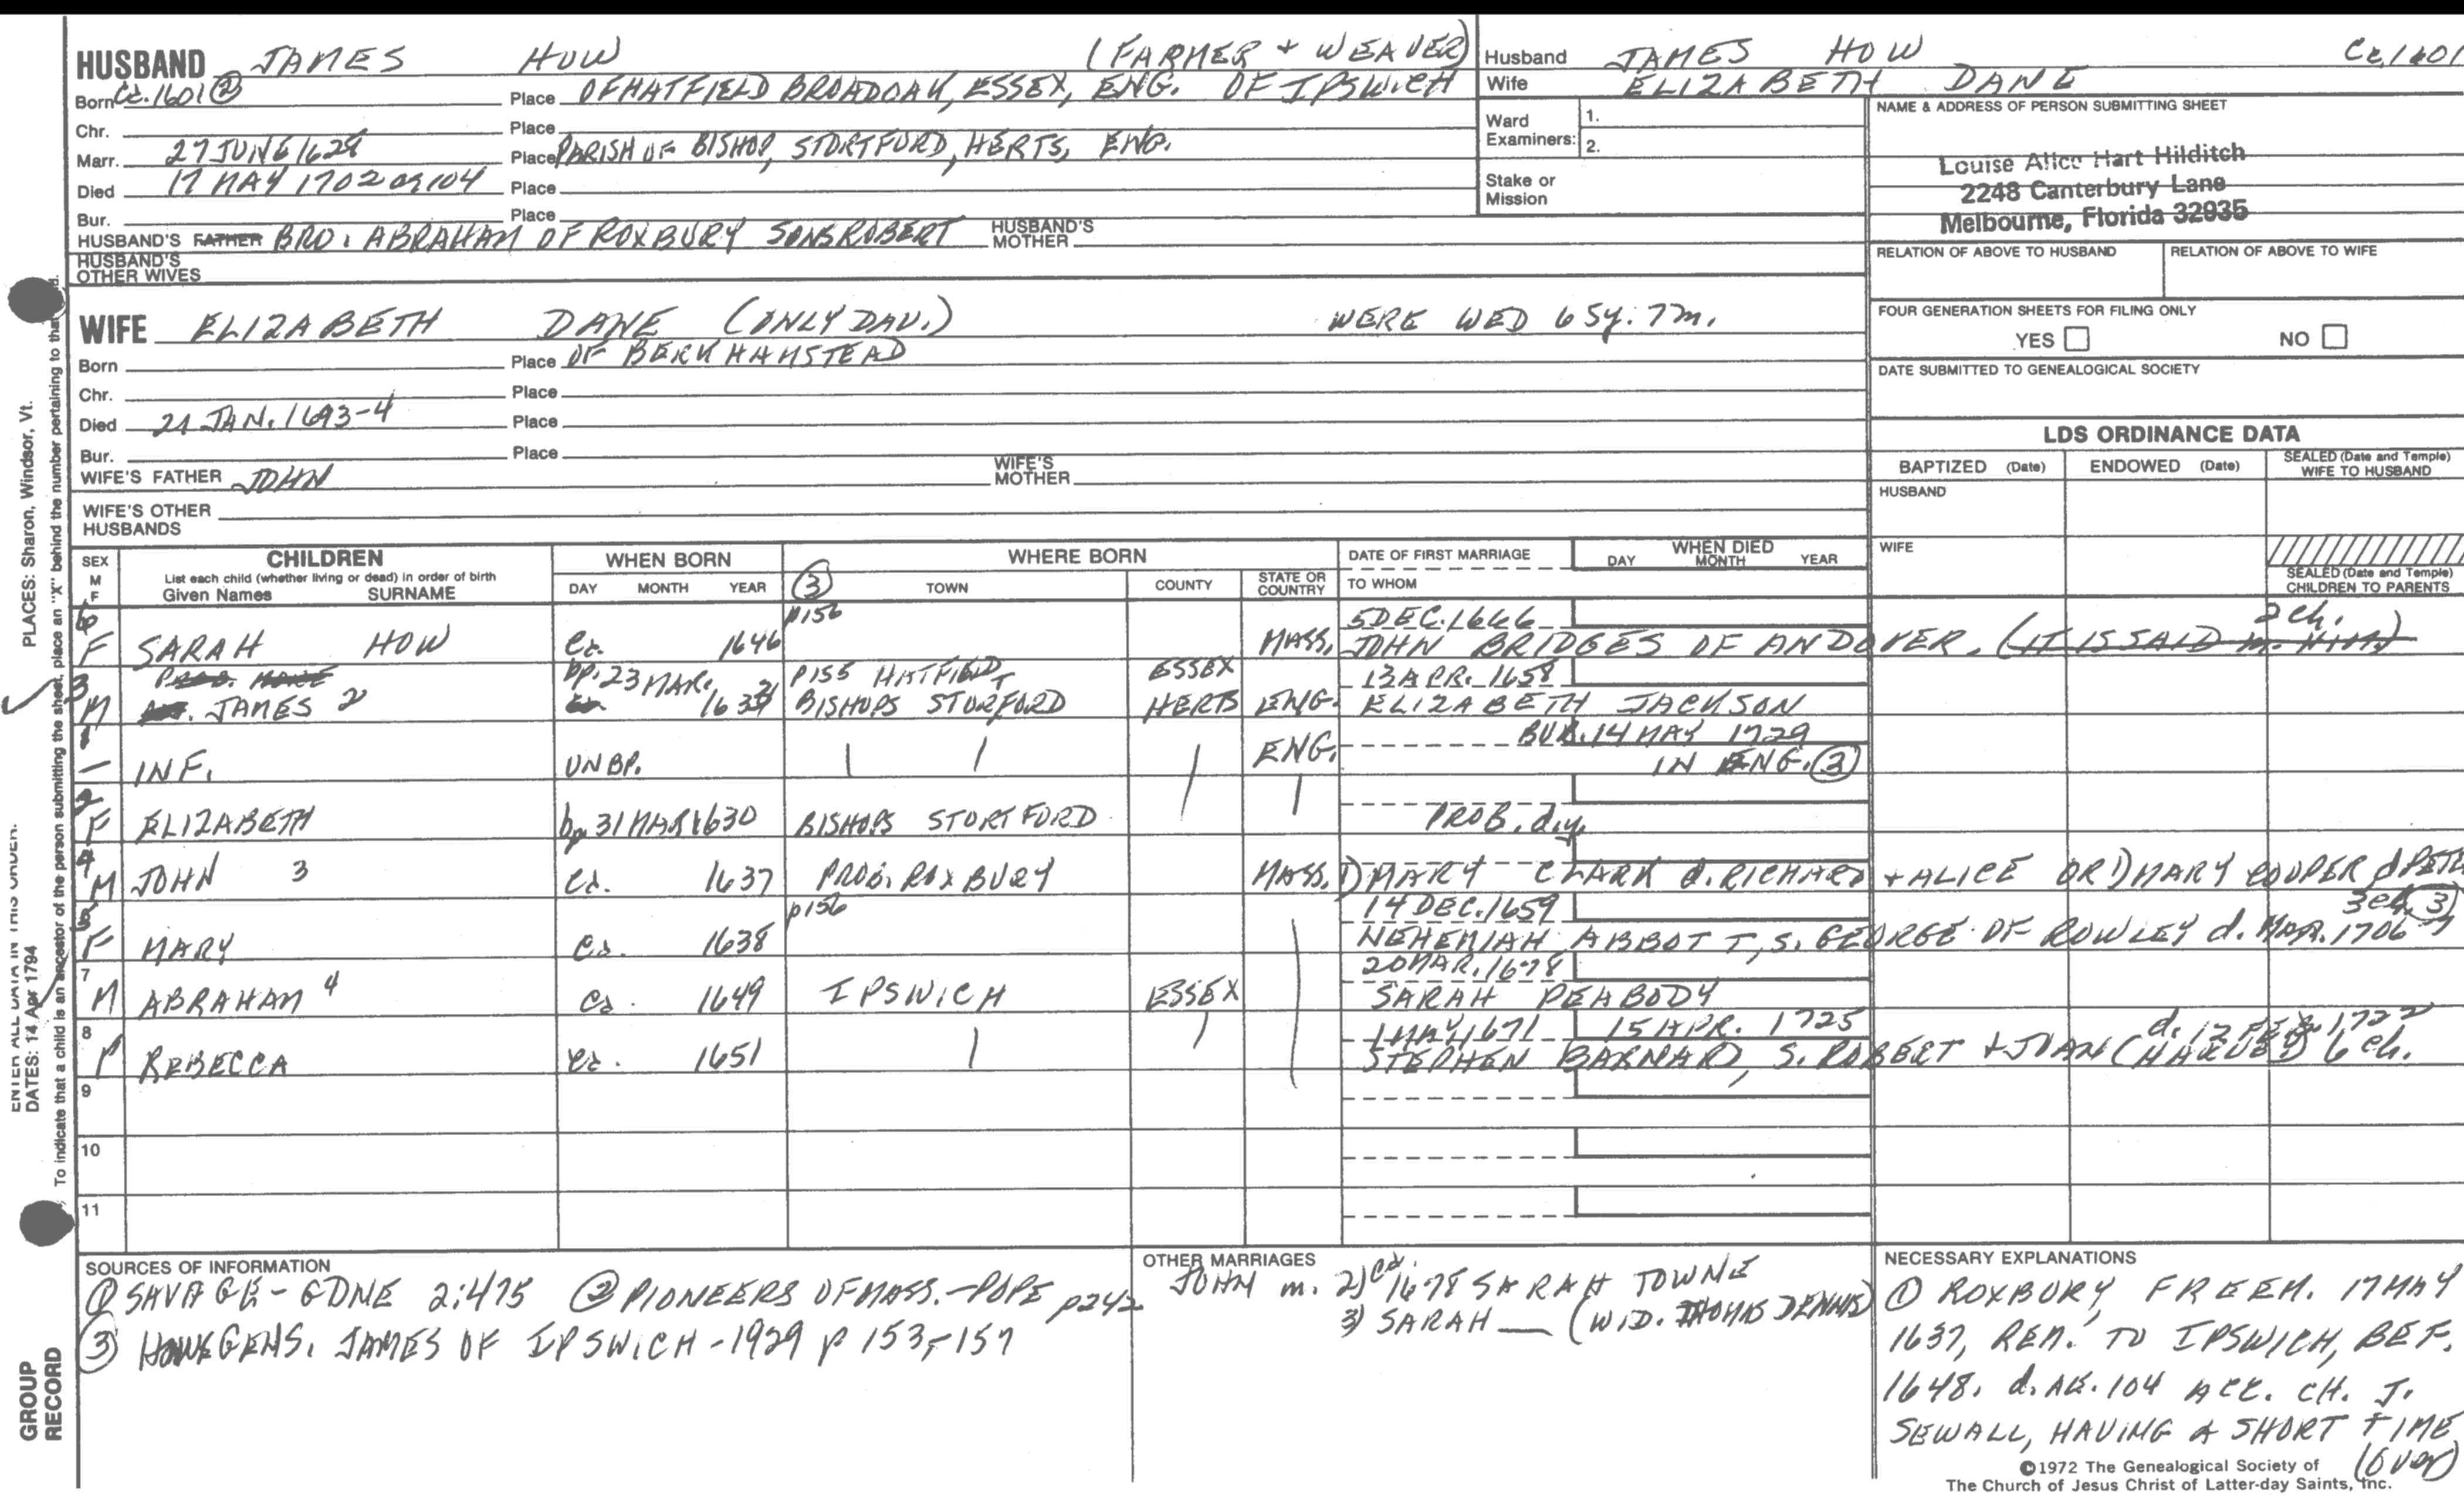 HUSBAND JAMES HOW (FARMER + WEAVER)
Born Ca. 1601 ② Place OF HATFIELD BROADOAK, ESSEX, ENG. OF IPSWICH
Chr. Place
Marr. 27 JUNE 1628 Place PARISH OF BISHOP, STORTFORD, HERTS, ENG.
Died 17 MAY 1702 ag 104 Place
Bur. Place
HUSBAND'S FATHER BRO. ABRAHAM OF ROXBURY SONS ROBERT HUSBAND'S MOTHER
HUSBAND'S OTHER WIVES
WIFE ELIZABETH DANE (ONLY DAU.) WERE WED 65y. 7m.
Born Place OF BERKHAMSTEAD
Chr. Place
Died 21 JAN. 1693-4 Place
Bur. Place
WIFE'S FATHER JOHN WIFE'S MOTHER
WIFE'S OTHER HUSBANDS
Husband JAMES HOW Ca. 1601
Wife ELIZABETH DANE
Ward Examiners: 1.
2.
Stake or Mission
NAME & ADDRESS OF PERSON SUBMITTING SHEET
Louise Alice Hart Hilditch
2248 Canterbury Lane
Melbourne, Florida 32935
RELATION OF ABOVE TO HUSBAND RELATION OF ABOVE TO WIFE
FOUR GENERATION SHEETS FOR FILING ONLY
YES NO
DATE SUBMITTED TO GENEALOGICAL SOCIETY
LDS ORDINANCE DATA
BAPTIZED (Date) ENDOWED (Date) SEALED (Date and Temple) WIFE TO HUSBAND
HUSBAND
WIFE
SEALED (Date and Temple) CHILDREN TO PARENTS
SEX M F CHILDREN WHEN BORN WHERE BORN DATE OF FIRST MARRIAGE WHEN DIED
List each child (whether living or dead) in order of birth
Given Names SURNAME DAY MONTH YEAR ③ TOWN COUNTY STATE OR COUNTRY TO WHOM DAY MONTH YEAR
6 p156 5 DEC. 1666 2 ch.
F SARAH HOW Ca. 1646 MASS. JOHN BRIDGES OF ANDOVER. (IT IS SAID m. HIM)
3 PROB. bp. 23 MAR. p155 HATFIELD ESSEX 13 APR. 1658
M JAMES 2 1633/4 BISHOPS STORFORD HERTS ENG. ELIZABETH JACKSON
1 BUR. 14 MAY 1729
— INF. UNBP. ENG. IN ENG. ③
2
F ELIZABETH bp 31 MAR 1630 BISHOPS STORTFORD PROB. d.y.
4
M JOHN 3 Ca. 1637 PROB. ROXBURY MASS. 1) MARY CLARK d. RICHARD + ALICE OR 1) MARY COOPER d PETE
5 p156 14 DEC. 1659 3 ch. ③
F MARY Ca. 1638 NEHEMIAH ABBOTT, S. GEORGE OF ROWLEY d. MAR. 1706-7
7 20 MAR. 1678
M ABRAHAM 4 Ca. 1649 IPSWICH ESSEX SARAH PEABODY
8 1 MAY 1671 15 APR. 1725 d. 12 FEB. 1722
F REBECCA Ca. 1651 STEPHEN BARNARD, S. ROBERT + JOAN (HARVEY) 6 ch.
9
10
11
SOURCES OF INFORMATION
① SAVAGE - GDNE 2:475 ② PIONEERS OF MASS. - POPE p242
③ HOWE GENS. JAMES OF IPSWICH - 1929 p 153-157
OTHER MARRIAGES
JOHN m. 2) ca. 1678 SARAH TOWNE
3) SARAH — (WID. THOMAS DENNIS)
NECESSARY EXPLANATIONS
① ROXBURY, FREEM. 17 MAY
1637, REM. TO IPSWICH, BEF.
1648. d. AE. 104 ACC. CH. J.
SEWALL, HAVING A SHORT TIME
(over)
©1972 The Genealogical Society of
The Church of Jesus Christ of Latter-day Saints, Inc.
PLACES: Sharon, Windsor, Vt.
ENTER ALL DATA IN THIS ORDER:
DATES: 14 Apr 1794
To indicate that a child is an ancestor of the person submitting the sheet, place an "X" behind the number pertaining to that
GROUP
RECORD